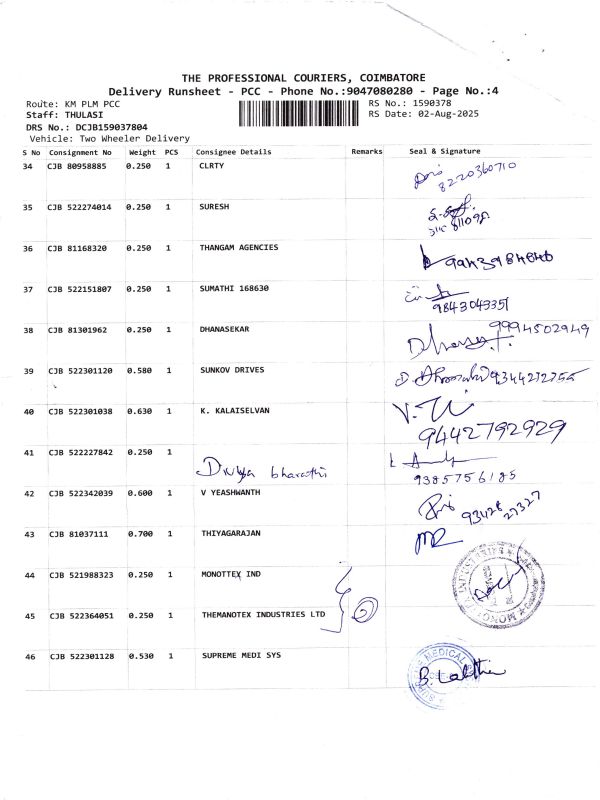 THE PROFESSIONAL COURIERS, COIMBATORE
Delivery Runsheet - PCC - Phone No.:9047080280 - Page No.:4
Route: KM PLM PCC
Staff: THULASI
DRS No.: DCJB159037804
Vehicle: Two Wheeler Delivery
RS No.: 1590378
RS Date: 02-Aug-2025
S No Consignment No Weight PCS Consignee Details Remarks Seal & Signature
34 CJB 80958885 0.250 1 CLRTY
8220360710
35 CJB 522274014 0.250 1 SURESH
36 CJB 81168320 0.250 1 THANGAM AGENCIES
37 CJB 522151807 0.250 1 SUMATHI 168630
9843043351
38 CJB 81301962 0.250 1 DHANASEKAR
9994502949
39 CJB 522301120 0.580 1 SUNKOV DRIVES
9344272755
40 CJB 522301038 0.630 1 K. KALAISELVAN
9442792929
41 CJB 522227842 0.250 1
Divya bharathi
9385756185
42 CJB 522342039 0.600 1 V YEASHWANTH
93428 27327
43 CJB 81037111 0.700 1 THIYAGARAJAN
44 CJB 521988323 0.250 1 MONOTTEX IND
45 CJB 522364051 0.250 1 THEMANOTEX INDUSTRIES LTD
46 CJB 522301128 0.530 1 SUPREME MEDI SYS